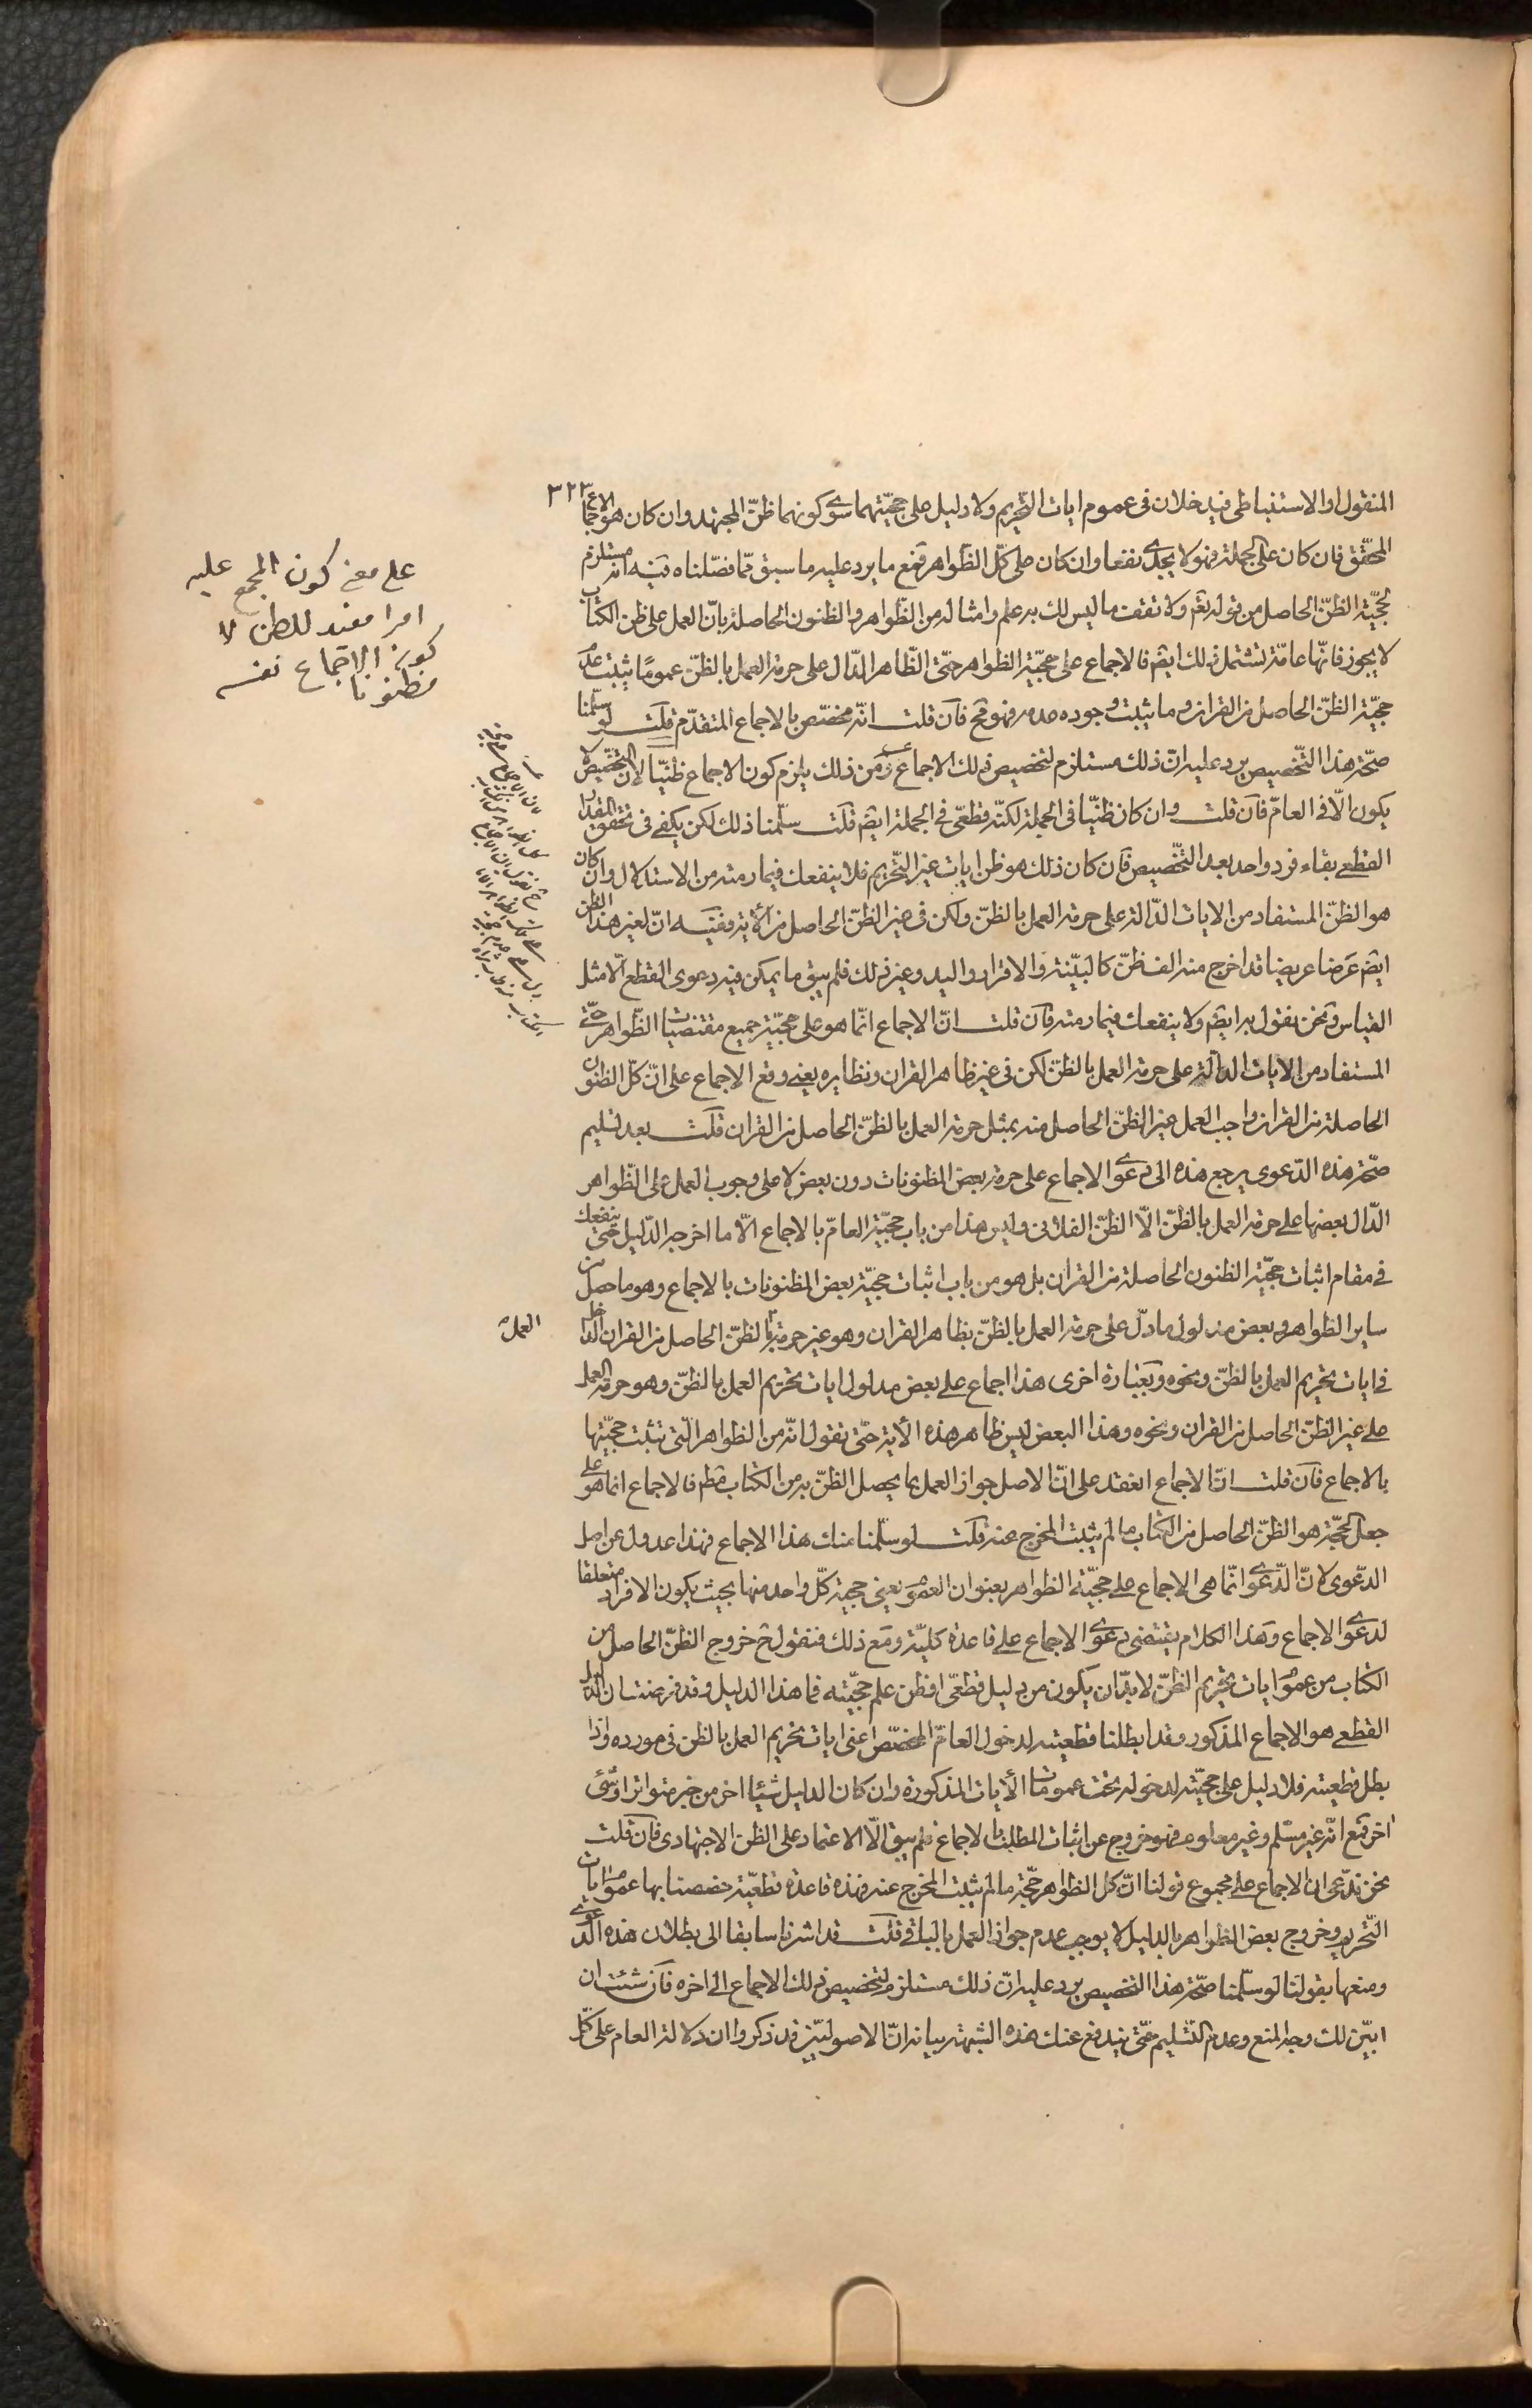 ٣٢٣
المنقول او الاستنباطى فيدخلان فى عموم ايات التّحريم ولا دليل على حجيّتهما سوى كونهما ظنّ المجتهد وان كان هو الاجماع
المحقّق فان كان على الجملة فهو لا يجدى نفعا وان كان على كلّ الظّواهر فمع ما يرد عليه ما سبق ممّا فصّلناه فيه انه مستلزم
لحجيّة الظنّ الحاصل من قوله تعم ولا تقف ما ليس لك به علم وامثاله من الظّواهر والظنون الحاصلة بانّ العمل على ظن الكتاب
لا يجوز فانّها عامّة تشتمل ذلك ايضم فالاجماع على حجيّة الظواهر حتّى الظّاهر الدّال على حرمة العمل بالظنّ عموما يثبت عدم
حجيّة الظنّ الحاصل من القران وما يثبت وجوده عدمه فهو مح فان قلت انّه مخصّص بالاجماع المتقدّم قلت لو سلّمنا
صحّة هذا التّخصيص يرد عليه انّ ذلك مستلزم لتخصيص ذلك الاجماع ومن ذلك يلزم كون الاجماع ظنيّا لان التخصيص لا
يكون الّا فى العامّ فان قلت وان كان ظنيّا فى الجملة لكنّه قطعىّ فى الجملة ايضم قلت سلّمنا ذلك لكن يكفى فى تحقق القدر
القطعى بقاء فرد واحد بعد التّخصيص فان كان ذلك هو ظن ايات غير التّحريم فلا ينفعك فيما رمته من الاستدلال وان كان
هو الظنّ المستفاد من الايات الدّالة على حرمة العمل بالظنّ ولكن فى غير الظنّ الحاصل من الأية ففيه انّ لغير هذا الظن
ايضم عَرضا عريضا قد اخرج منه الف ظنّ كالبيّنة والاقرار واليد وغير ذلك فلم يبق ما يمكن فيه دعوى القطع الّا مثل
القياس ونحن نقول به ايضم ولا ينفعك فيما رمته فان قلت انّ الاجماع انّما هو على حجيّة جميع مقتضيات الظّواهر حتّى
المستفاد من الايات الدالّة على حرمة العمل بالظنّ لكن فى غير ظاهر القران ونظايره يعنى وقع الاجماع على انّ كلّ الظنون
الحاصلة من القران واجب العمل غير الظنّ الحاصل منه بمثل حرمة العمل بالظنّ الحاصل من القران قلت بعد تسليم
صحّة هذه الدّعوى يرجع هذه الى دعوى الاجماع على حرمة بعض المظنونات دون بعض لا على وجوب العمل على الظّواهر
الدّال بعضها على حرمة العمل بالظنّ الّا الظنّ الفلانى وليس هذا من باب حجيّة العامّ بالاجماع الّا ما اخرجه الدّليل حتى ينفعك
فى مقام اثبات حجيّة الظنون الحاصلة من القران بل هو من باب اثبات حجيّة بعض المظنونات بالاجماع وهو ما حصل من
ساير الظواهر وبعض مدلول ما دلّ على حرمة العمل بالظنّ بظاهر القران وهو غير حرمة بالظنّ الحاصل من القران الداخل
فى ايات تحريم العمل بالظنّ ونحوه وبعبارة اخرى هذا اجماع على بعض مدلول ايات تحريم العمل بالظنّ وهو حرمة العمل
على غير الظنّ الحاصل من القران ونحوه وهذا البعض ليس ظاهر هذه الأية حتّى تقول انّه من الظواهر الّتى تثبت حجيّتها
بالاجماع فان قلت انّ الاجماع انعقد على انّ الاصل جواز العمل بما يحصل الظنّ به من الكتاب مطم فالاجماع انما هو على
جعل الحجّة هو الظنّ الحاصل من الكتاب ما لم يثبت المخرج عنه قلت لو سلّمنا منك هذا الاجماع فهذا عدول عن اصل
الدعوى لانّ الدّعوى انّما هى الاجماع على حجيّة الظواهر بعنوان العموم يعنى حجية كلّ واحد منها بحيث يكون الافراد متعلقا
لدعوى الاجماع وهذا الكلام يقتضى دعوى الاجماع على قاعدة كليّة ومع ذلك فنقول ح خروج الظنّ الحاصل من
الكتاب من عموم ايات تحريم الظنّ لا بدّ ان يكون من دليل قطعىّ او ظن علم حجيّته فما هذا الدليل وقد فرضت ان الدليل
القطعى هو الاجماع المذكور وقد ابطلنا قطعيته لدخول العامّ المخصّص اعنى ايات تحريم العمل بالظن فى مورده واذا
بطل قطعيته فلا دليل على حجيّته لدخوله تحت عمومات الأيات المذكورة وان كان الدليل شيئا اخر من خبر متواتر او شئ
اخر فمع انّه غير مسّلم وغير معلوم فهو خروج عن اثبات المطلب بالاجماع فلم يبق الّا الاعتماد على الظن الاجتهادى فان قلت
نحن ندّعى ان الاجماع على مجموع قولنا انّ كل الظواهر حجّة ما لم يثبت المخرج عنه فهذه قاعدة قطعيّة خصصنا بها عموم ايات
التّحريم وخروج بعض الظواهر بالدليل لا يوجب عدم جواز العمل بالباقى قلت قد اشرنا سابقا الى بطلان هذه الدّعوى
ومنعها بقولنا لو سلّمنا صحّة هذا التخصيص يرد عليه انّ ذلك مستلزم لتخصيص ذلك الاجماع الى اخره فان شئت ان
ابيّن لك وجه المنع وعدم التّسليم حتّى يندفع عنك هذه الشبهة بيانه انّ الاصوليّين قد ذكروا ان دلالة العام على كلّ
على معنى كون المجمع عليه
امرا مفيد للظن لا
كون الاجماع نفسه
مظنونا
العمل